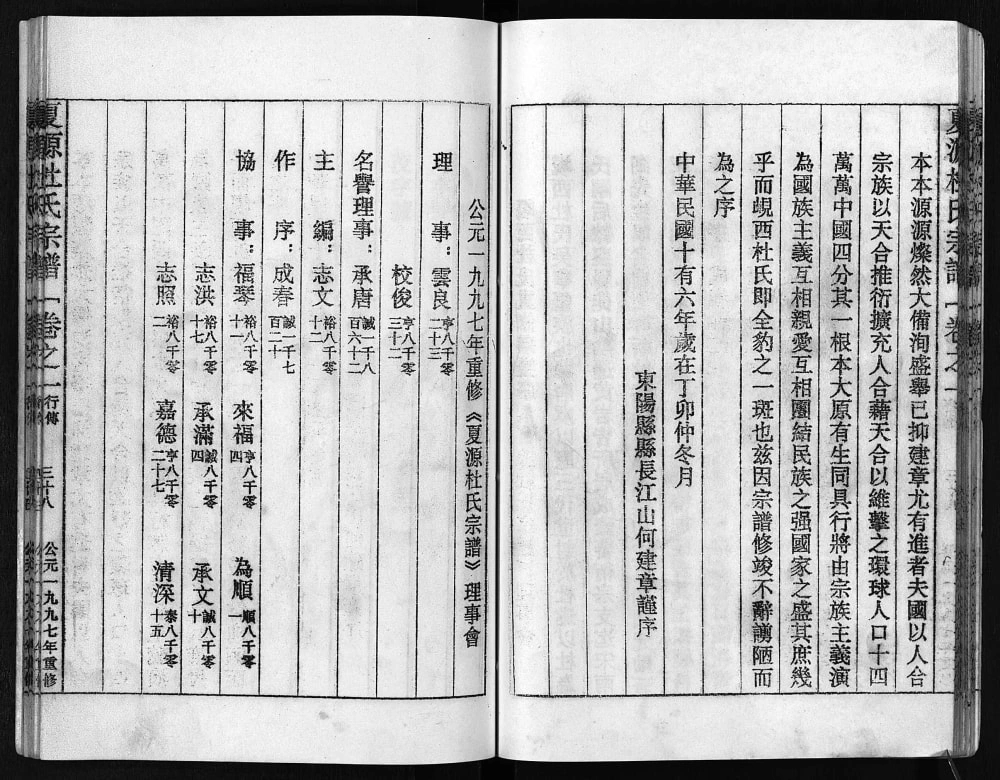 夏源杜氏宗譜
卷之一
本本源源燦然大備洵盛舉已抑建章尤有進者夫國以人合
宗族以天合推衍擴充人合藉天合以維繫之環球人口十四
萬萬中國四分其一根本大原有生同具行將由宗族主義演
為國族主義互相親愛互相團結民族之强國家之盛其庶幾
乎而峴西杜氏即全豹之一斑也兹因宗譜修竣不辭譾陋而
為之序
中華民國十有六年歲在丁卯仲冬月
東陽縣縣長江山何建章謹序
公元一九九七年重修《夏源杜氏宗譜》理事會
理事：雲良 亨八千零二十三
校俊 亨八千零三十二
名譽理事：承唐 誠一千八百六十二
主編：志文 裕八千零十二
作序：成春 誠一千七百二十
協事：福琴 裕八千零十一 來福 亨八千零四 為順 順八千零一
志洪 裕八千零十七 承滿 誠八千零四 承文 誠八千零十
志照 裕八千零二 嘉德 亨八千零二十七 清深 泰八千零十五
夏源杜氏宗譜 卷之一 行傳 三十八 公元一九九七年重修